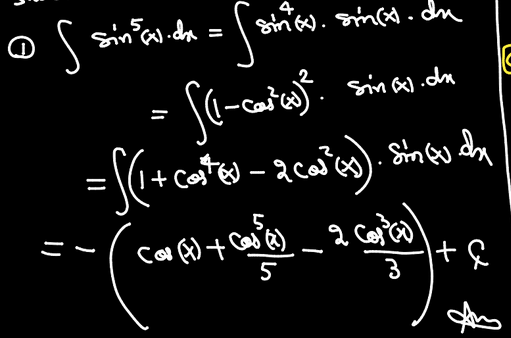 ① ∫ sin⁵(x)·dx = ∫ sin⁴(x)· sin(x)· dx
= ∫(1-cos²(x))²· sin(x)·dx
= ∫(1+cos⁴(x) - 2cos²(x))· sin(x)·dx
= -(cos(x) + cos⁵(x)/5 - 2cos³(x)/3) + C
Ans